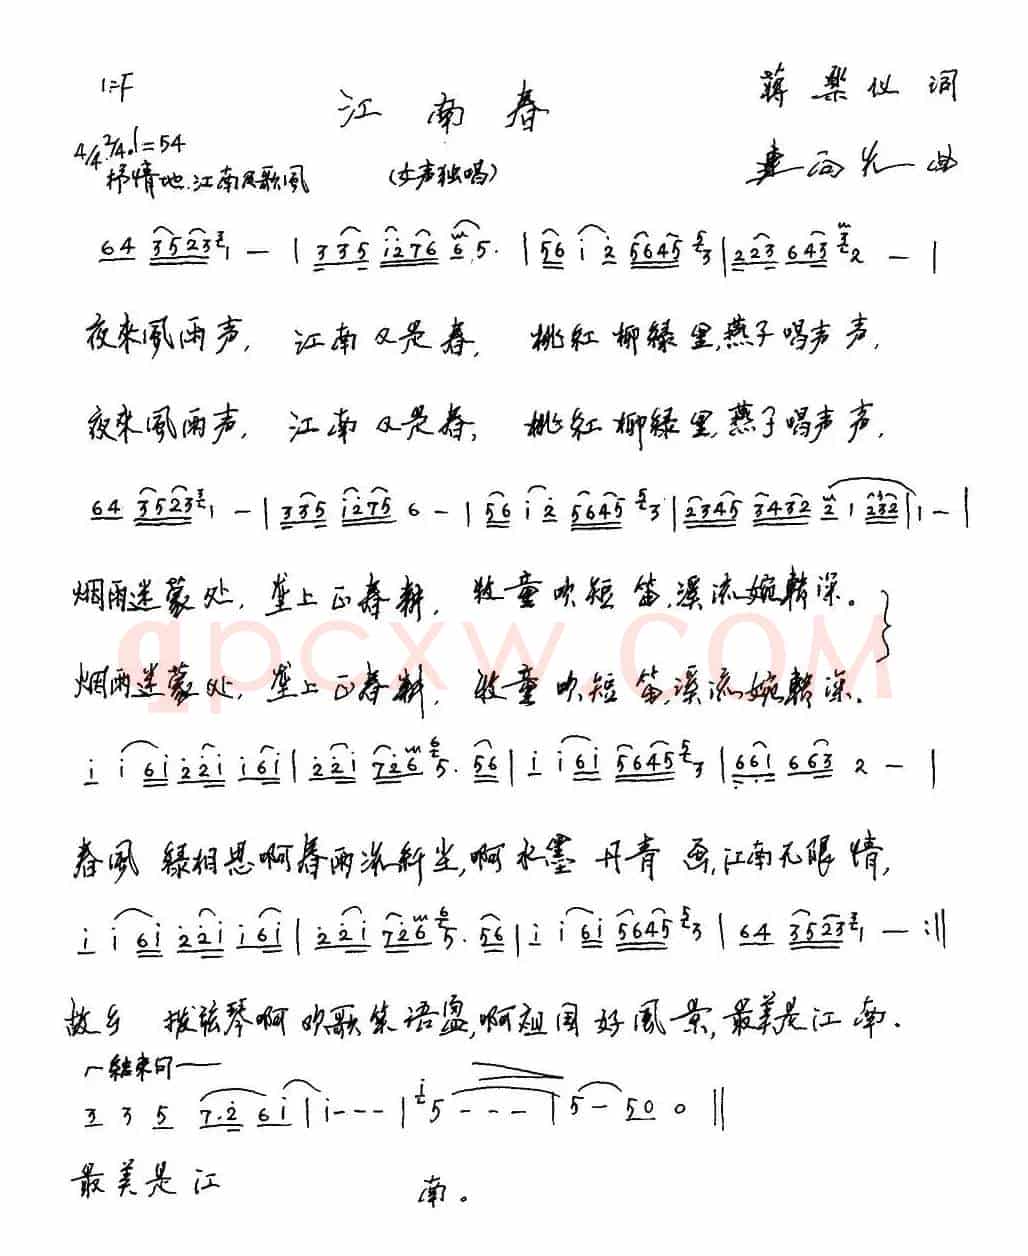 1=F
江南春
蒋燊仪 词
4/4 2/4 ♩=54
抒情地.江南民歌風
(女声独唱)
向光 曲
64 3523 1 — | 3 35 i276 6 5. | 56 i 2 5645 3 | 223 643 2 — |
夜來風雨声, 江南又是春, 桃紅柳綠里,燕子唱声声,
夜來風雨声, 江南又是春, 桃紅柳綠里,燕子唱声声,
64 3523 1 — | 335 i275 6 — | 56 i 2 5645 3 | 2345 3432 2 1 232 | 1 — |
烟雨迷蒙处, 垄上正春耕, 牧童吹短笛,溪流婉轉深。
烟雨迷蒙处, 垄上正春耕, 牧童吹短笛,溪流婉轉深.
qpcxw.COM
i i 6i 22i i6i | 22i 726 5. 56 | i i 6i 5645 3 | 66i 663 2 — |
春風 綠相思啊春雨滌纤尘,啊水墨丹青画,江南无限情,
i i 6i 22i i6i | 22i 726 5. 56 | i i 6i 5645 3 | 64 3523 1 — :||
故乡 拨弦琴啊欢歌笑语盈,啊祖国好風景,最美是江南.
结束句
3 3 5 7.2 6i | i - - - | 5 - - - | 5 — 50 0 ||
最美是江 南。